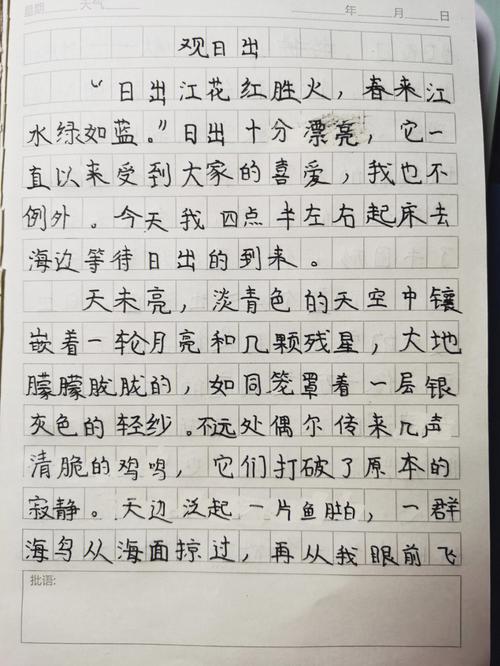 星期 天气 年 月 日
观日出
“日出江花红胜火，春来江
水绿如蓝。”日出十分漂亮，它一
直以来受到大家的喜爱，我也不
例外。今天我四点半左右起床去
海边等待日出的到来。
天未亮，淡青色的天空中镶
嵌着一轮月亮和几颗残星，大地
朦朦胧胧的，如同笼罩着一层银
灰色的轻纱。不远处偶尔传来几声
清脆的鸡鸣，它们打破了原本的
寂静。天边泛起一片鱼肚白，一群
海鸟从海面掠过，再从我眼前飞
批语: